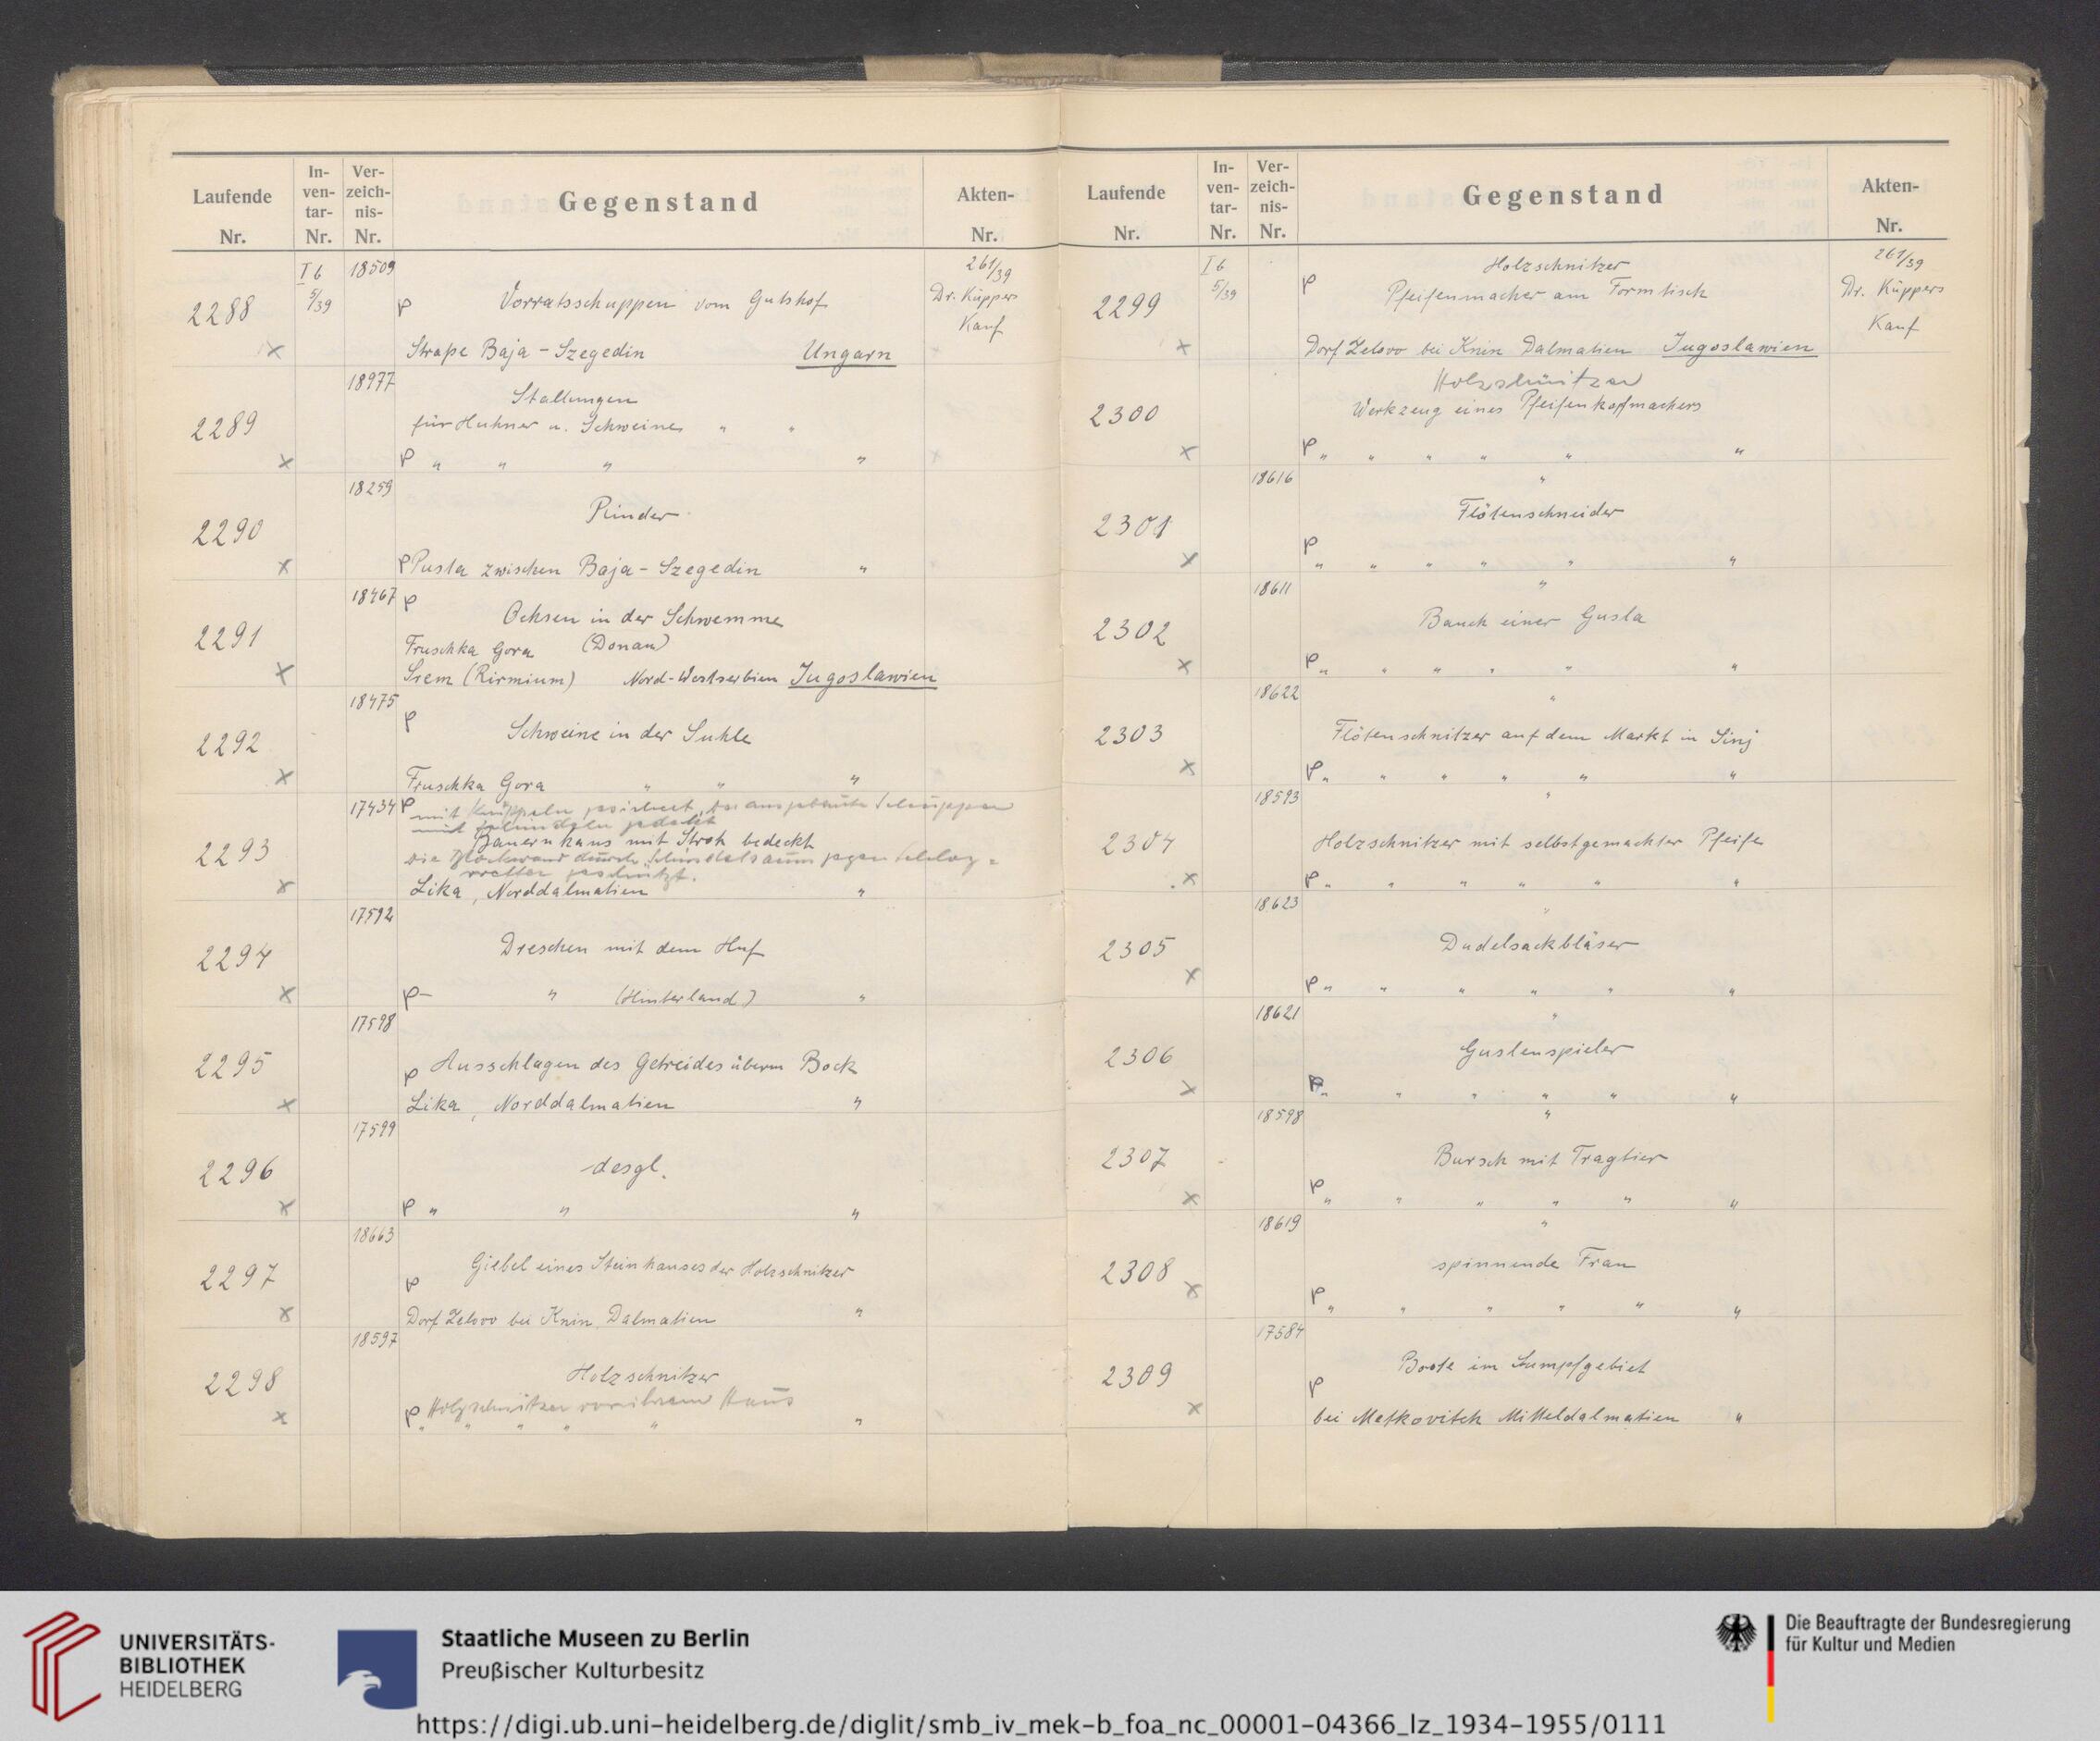 Laufende Nr.
In-ven-tar-Nr.
Ver-zeich-nis-Nr.
Gegenstand
Akten-Nr.
I 6 18509 261/39
2288 5/39 P Vorratsschuppen vom Gutshof Dr. Küppers
Kauf
x Straße Baja - Szegedin Ungarn
18977
Stallungen
2289 für Huhner u. Schweine " "
x P " " " "
18259
2290 Rinder
x P Pusta zwischen Baja - Szegedin "
18467 P
Ochsen in der Schwemme
2291 Fruschka Gora (Donau)
x Srem (Rirmium) Nord-Westserbien Jugoslawien
18475
P
2292 Schweine in der Suhle
x Fruschka Gora " " "
17434 P mit
mit Schindeln gedeckt
2293 Bauernhaus mit Stroh bedeckt
die
x Lika, Norddalmatien "
17592
2294 Dreschen mit dem Huf
x P - " (Hinterland) "
17598
2295 P Ausschlagen des Getreides überm Bock
x Lika, Norddalmatien "
17599
2296 desgl.
x P " " "
18663
2297 P Giebel eines Steinhauses der Holzschnitzer
x Dorf Zelovo bei Knin, Dalmatien "
18597
2298 Holzschnitzer
P Holzschnitzer vor ihrem Haus
x " " " " " "
Laufende Nr.
In-ven-tar-Nr.
Ver-zeich-nis-Nr.
Gegenstand
Akten-Nr.
I 6 Holzschnitzer 261/39
2299 5/39 P Pfeifenmacher am Formtisch Dr. Küppers
Kauf
x Dorf Zelovo bei Knin Dalmatien Jugoslawien
Holzschnitzer
2300 Werkzeug eines Pfeifenkopfmachers
x P " " " " " "
18616 "
2301 Flötenschneider
P
x " " " " " "
18611 "
2302 Bauch einer Gusla
x P " " " " " "
18622 "
2303 Flötenschnitzer auf dem Markt in Sinj
x P " " " " " "
18593 "
2304 Holzschnitzer mit selbstgemachter Pfeife
x P " " " " " "
18623 "
2305 Dudelsackbläser
x P " " " " " "
18621 "
2306 Guslenspieler
x P " " " " " "
18598 "
2307 Bursch mit Tragtier
P
x " " " " " "
18619 "
2308 spinnende Frau
x P " " " " " "
17584
2309 Boote im Sumpfgebiet
P
x bei Metkovitch Mitteldalmatien "
UNIVERSITÄTS-
BIBLIOTHEK
HEIDELBERG
Staatliche Museen zu Berlin
Preußischer Kulturbesitz
Die Beauftragte der Bundesregierung
für Kultur und Medien
https://digi.ub.uni-heidelberg.de/diglit/smb_iv_mek-b_foa_nc_00001-04366_lz_1934-1955/0111